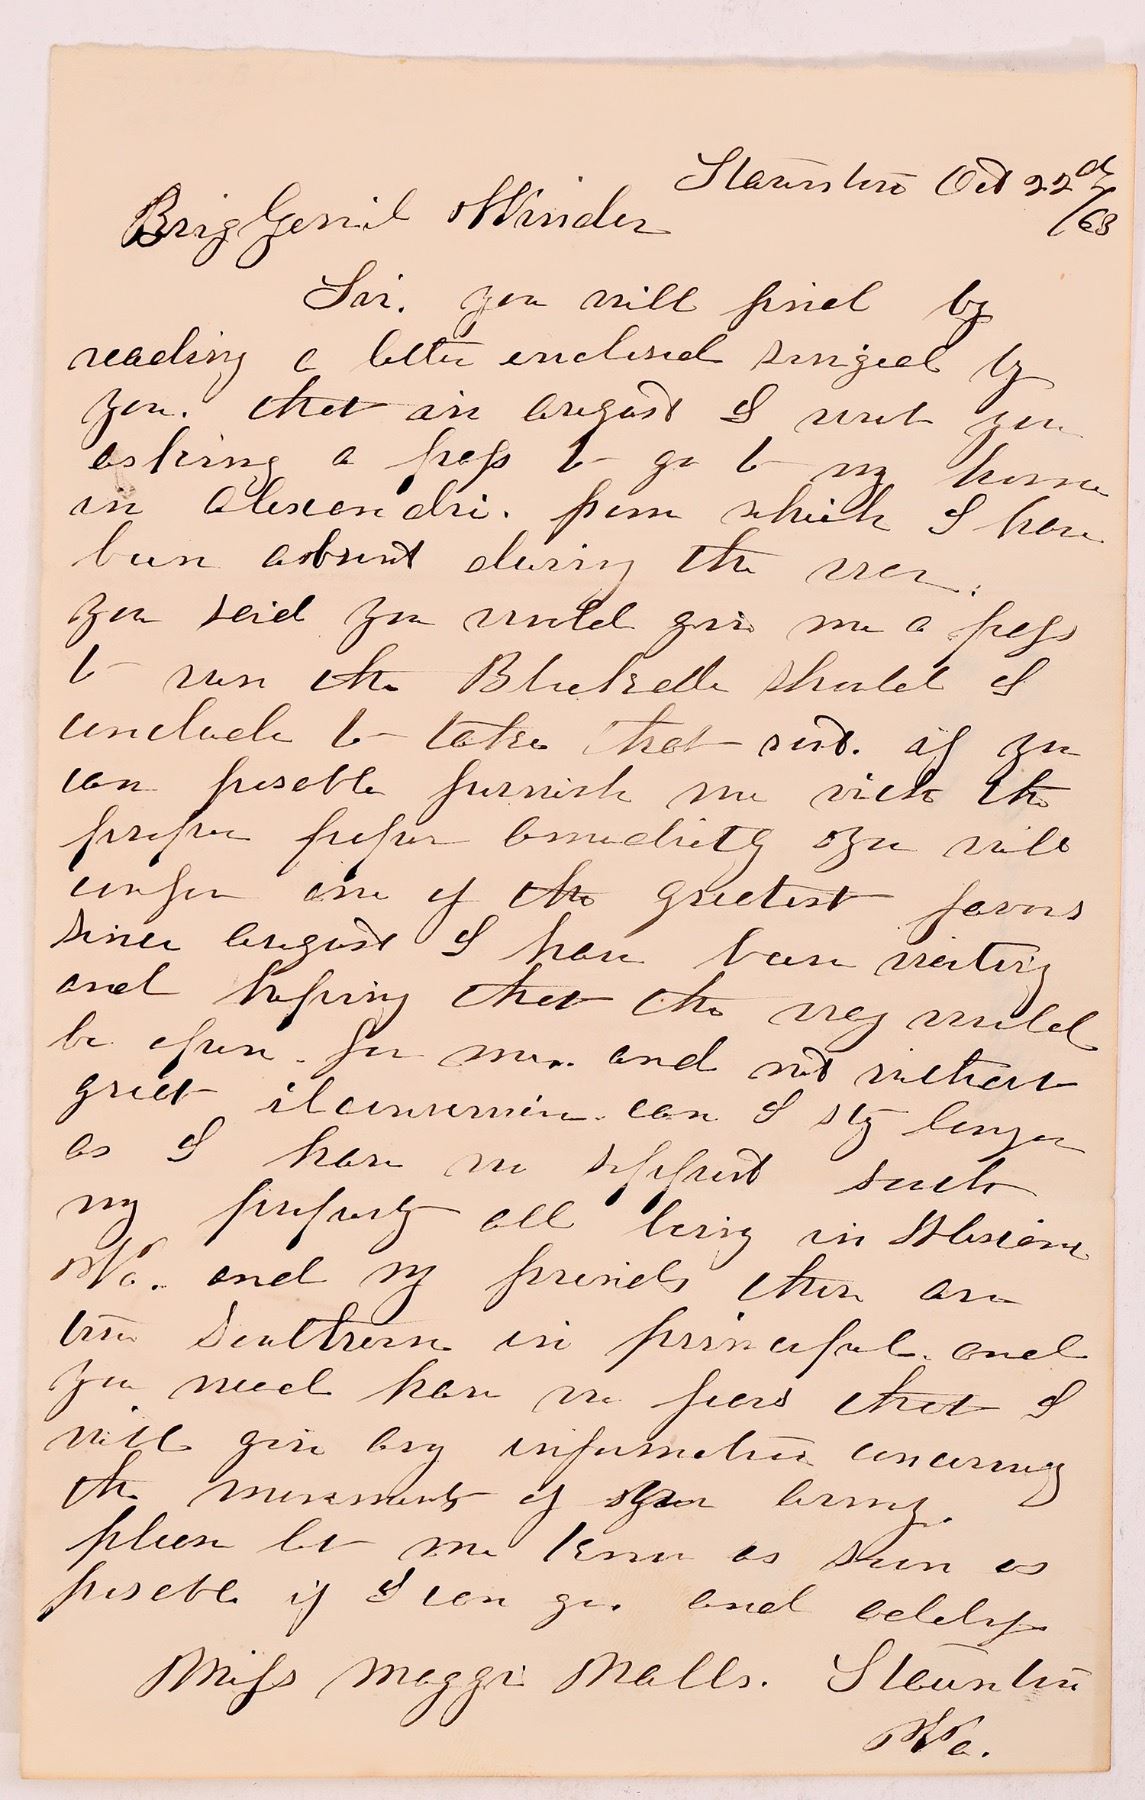 Staunton Oct 22nd
/63
Brig Genrl Winder
Sir. you will find by
reading a letter enclosed singed by
you. that in august I wrot you
asking a pass to go to my home
in alexandri. from which I have
been absent during the war.
you said you would give me a pass
to run the Blockade should I
conclude to take that rout. if you
can posable furnish me with the
proper paper emediatly you will
confer one of the greatest favors
since august I have been waiting
and hoping that the way would
be open. for me. and not without
great can I stay longer
as I have no support such
my property all being in Alexian
Va. and my friends there are
true Southern in principal. and
you need have no fears that I
will give any information concerning
the movements of your army.
please let me know as soon as
posable if I can go. and address
Miss Maggi Walls. Staunton
Va.